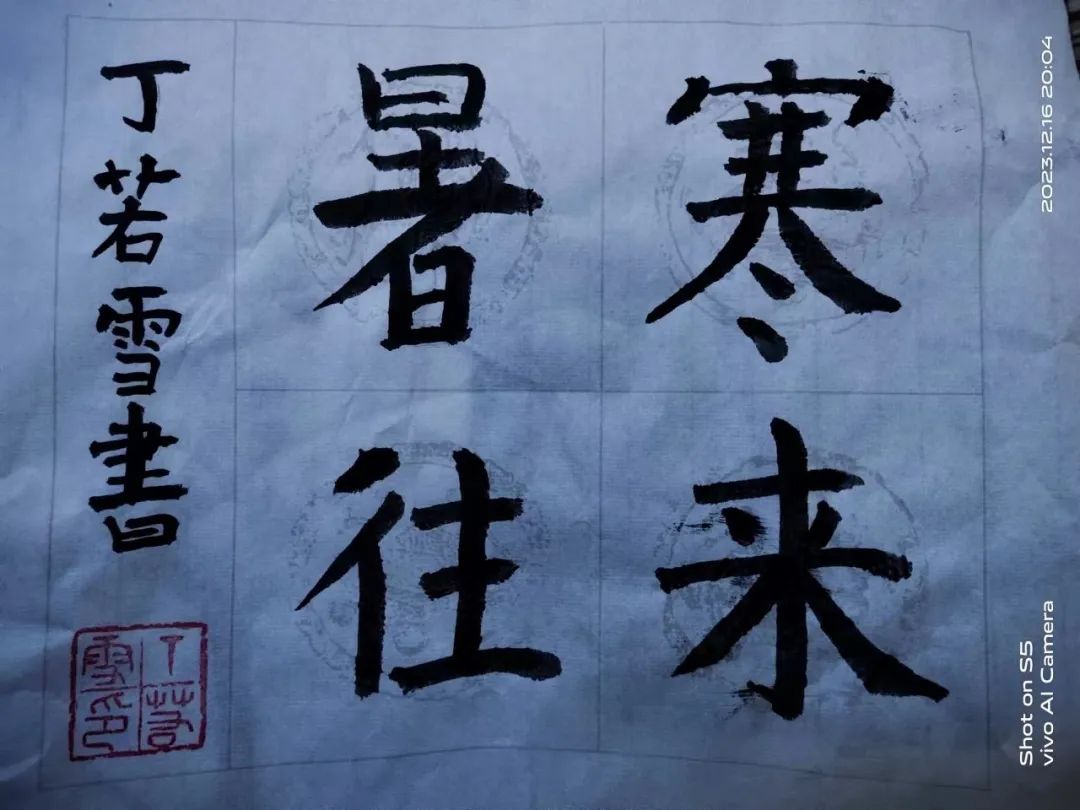 寒来
暑往
丁若雪書
丁若
雪印
2023.12.16 20:04
Shot on S5
vivo AI Camera